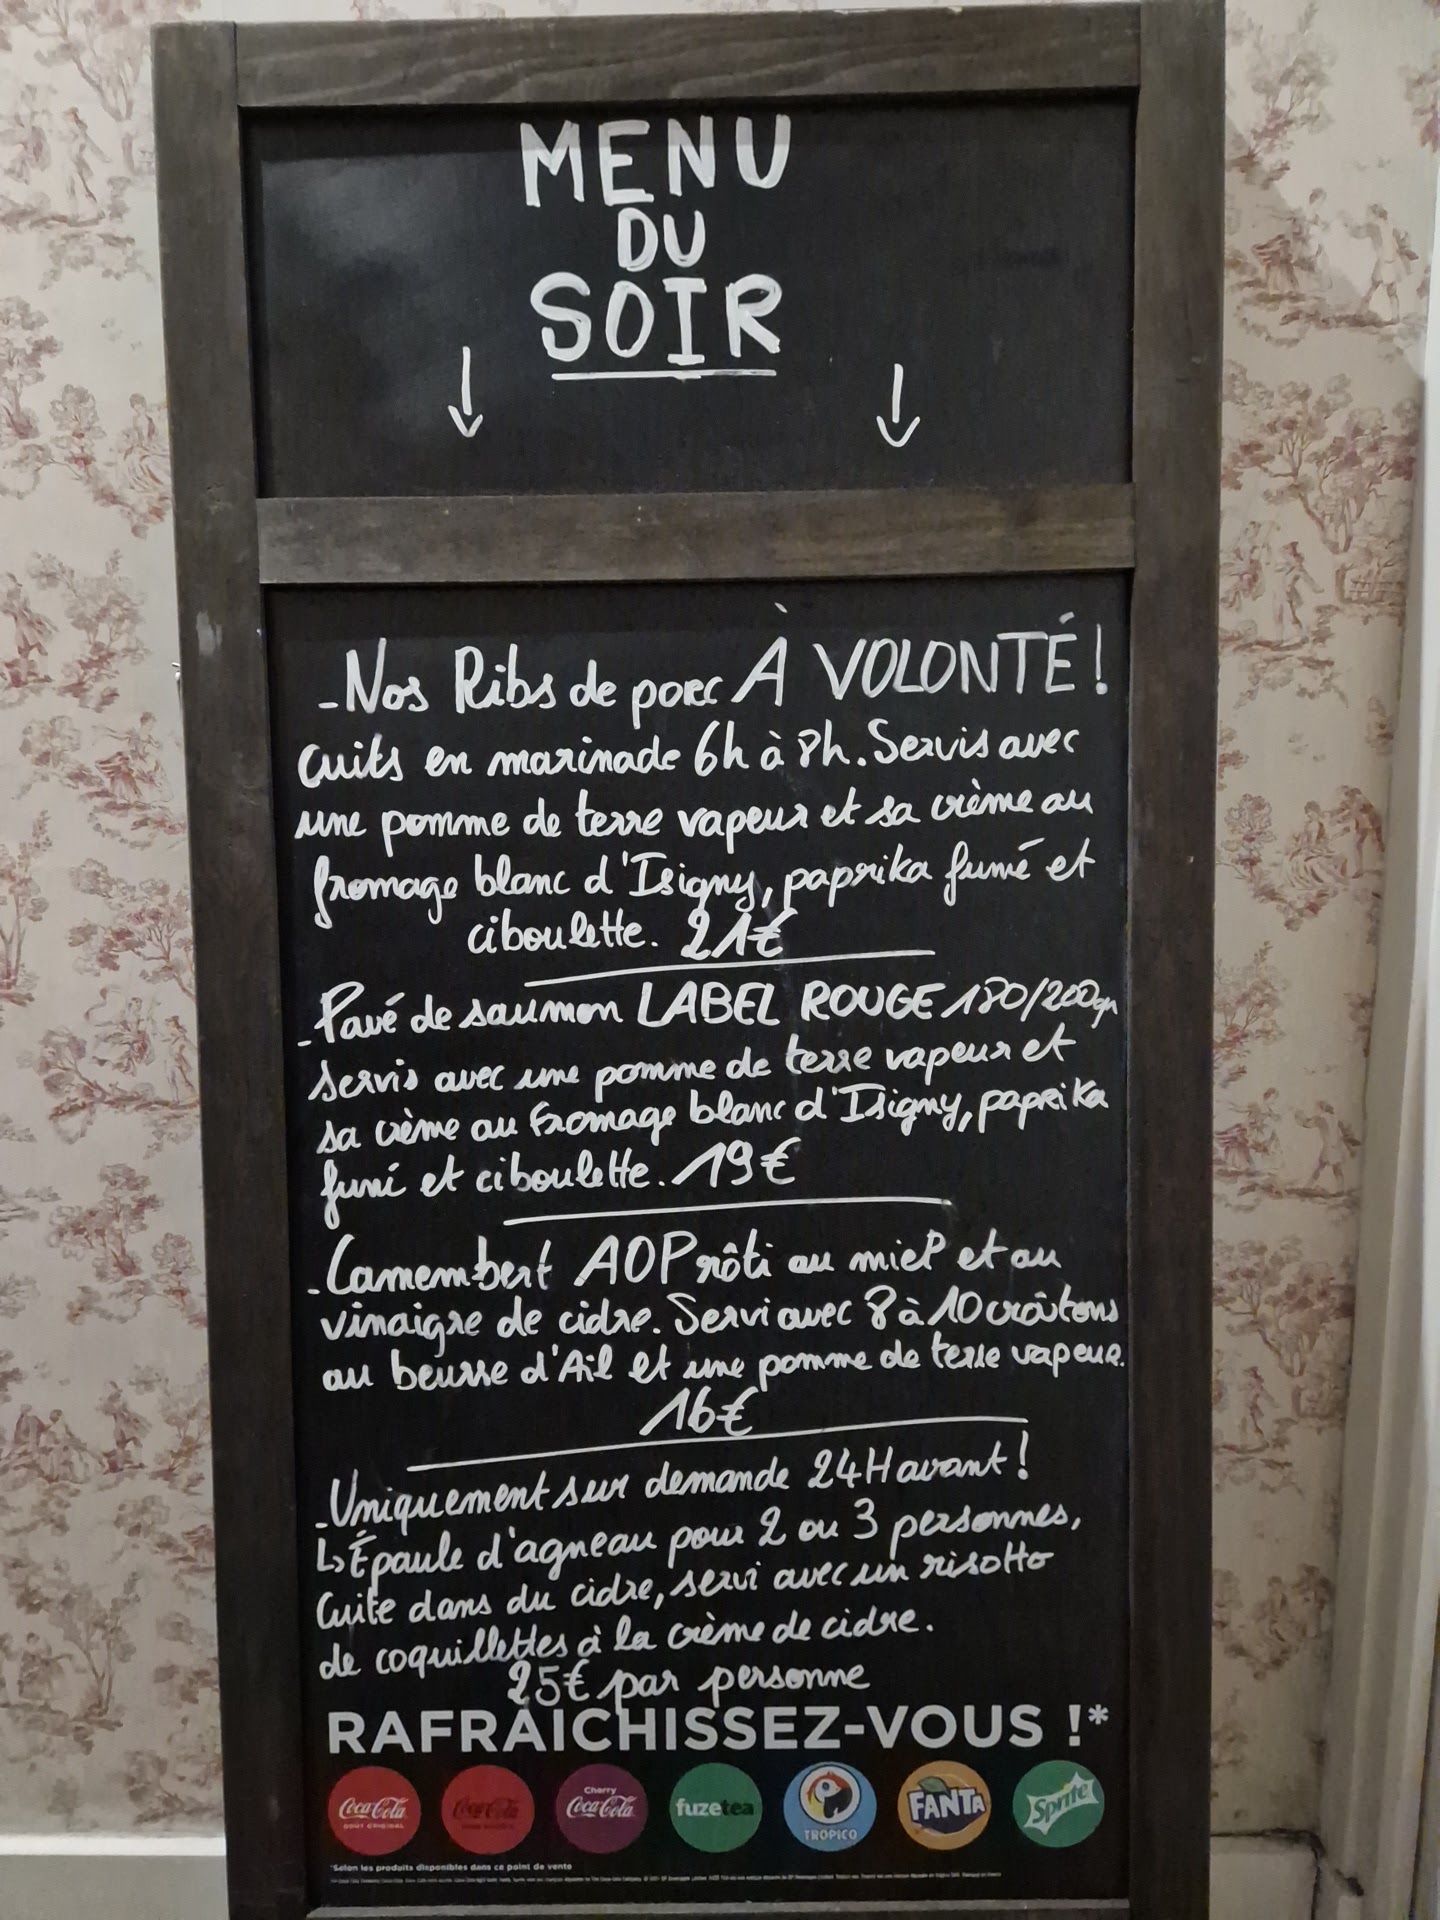 MENU
DU
SOIR
- Nos Ribs de porc À VOLONTÉ !
Cuits en marinade 6h à 8h. Servis avec
une pomme de terre vapeur et sa crème au
fromage blanc d'Isigny, paprika fumé et
ciboulette. 21€
- Pavé de saumon LABEL ROUGE 180/200gr
Servis avec une pomme de terre vapeur et
sa crème au Fromage blanc d'Isigny, paprika
fumé et ciboulette. 19€
- Camembert AOP rôti au miel et au
vinaigre de cidre. Servi avec 8 à 10 croûtons
au beurre d'Ail et une pomme de terre vapeur.
16€
- Uniquement sur demande 24H avant !
↳ Épaule d'agneau pour 2 ou 3 personnes,
Cuite dans du cidre, servi avec un risotto
de coquillettes à la crème de cidre.
25€ par personne
RAFRAICHISSEZ-VOUS !*
Coca-Cola GOÛT ORIGINAL Coca-Cola Cherry Coca-Cola fuzetea TROPICO FANTA Sprite
*Selon les produits disponibles dans ce point de vente